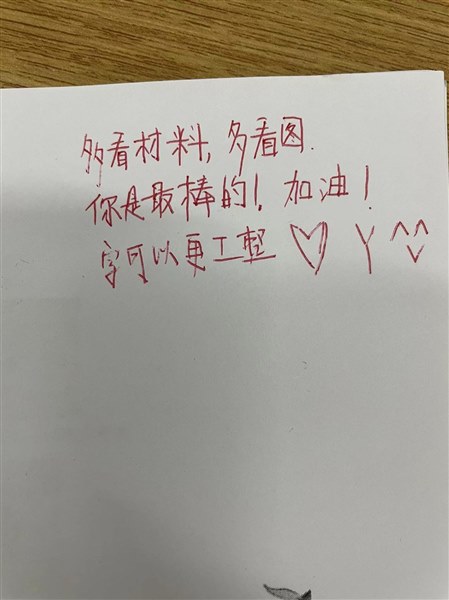 多看材料,多看图.
你是最棒的!加油!
字可以更工整 ♡ Y ^^